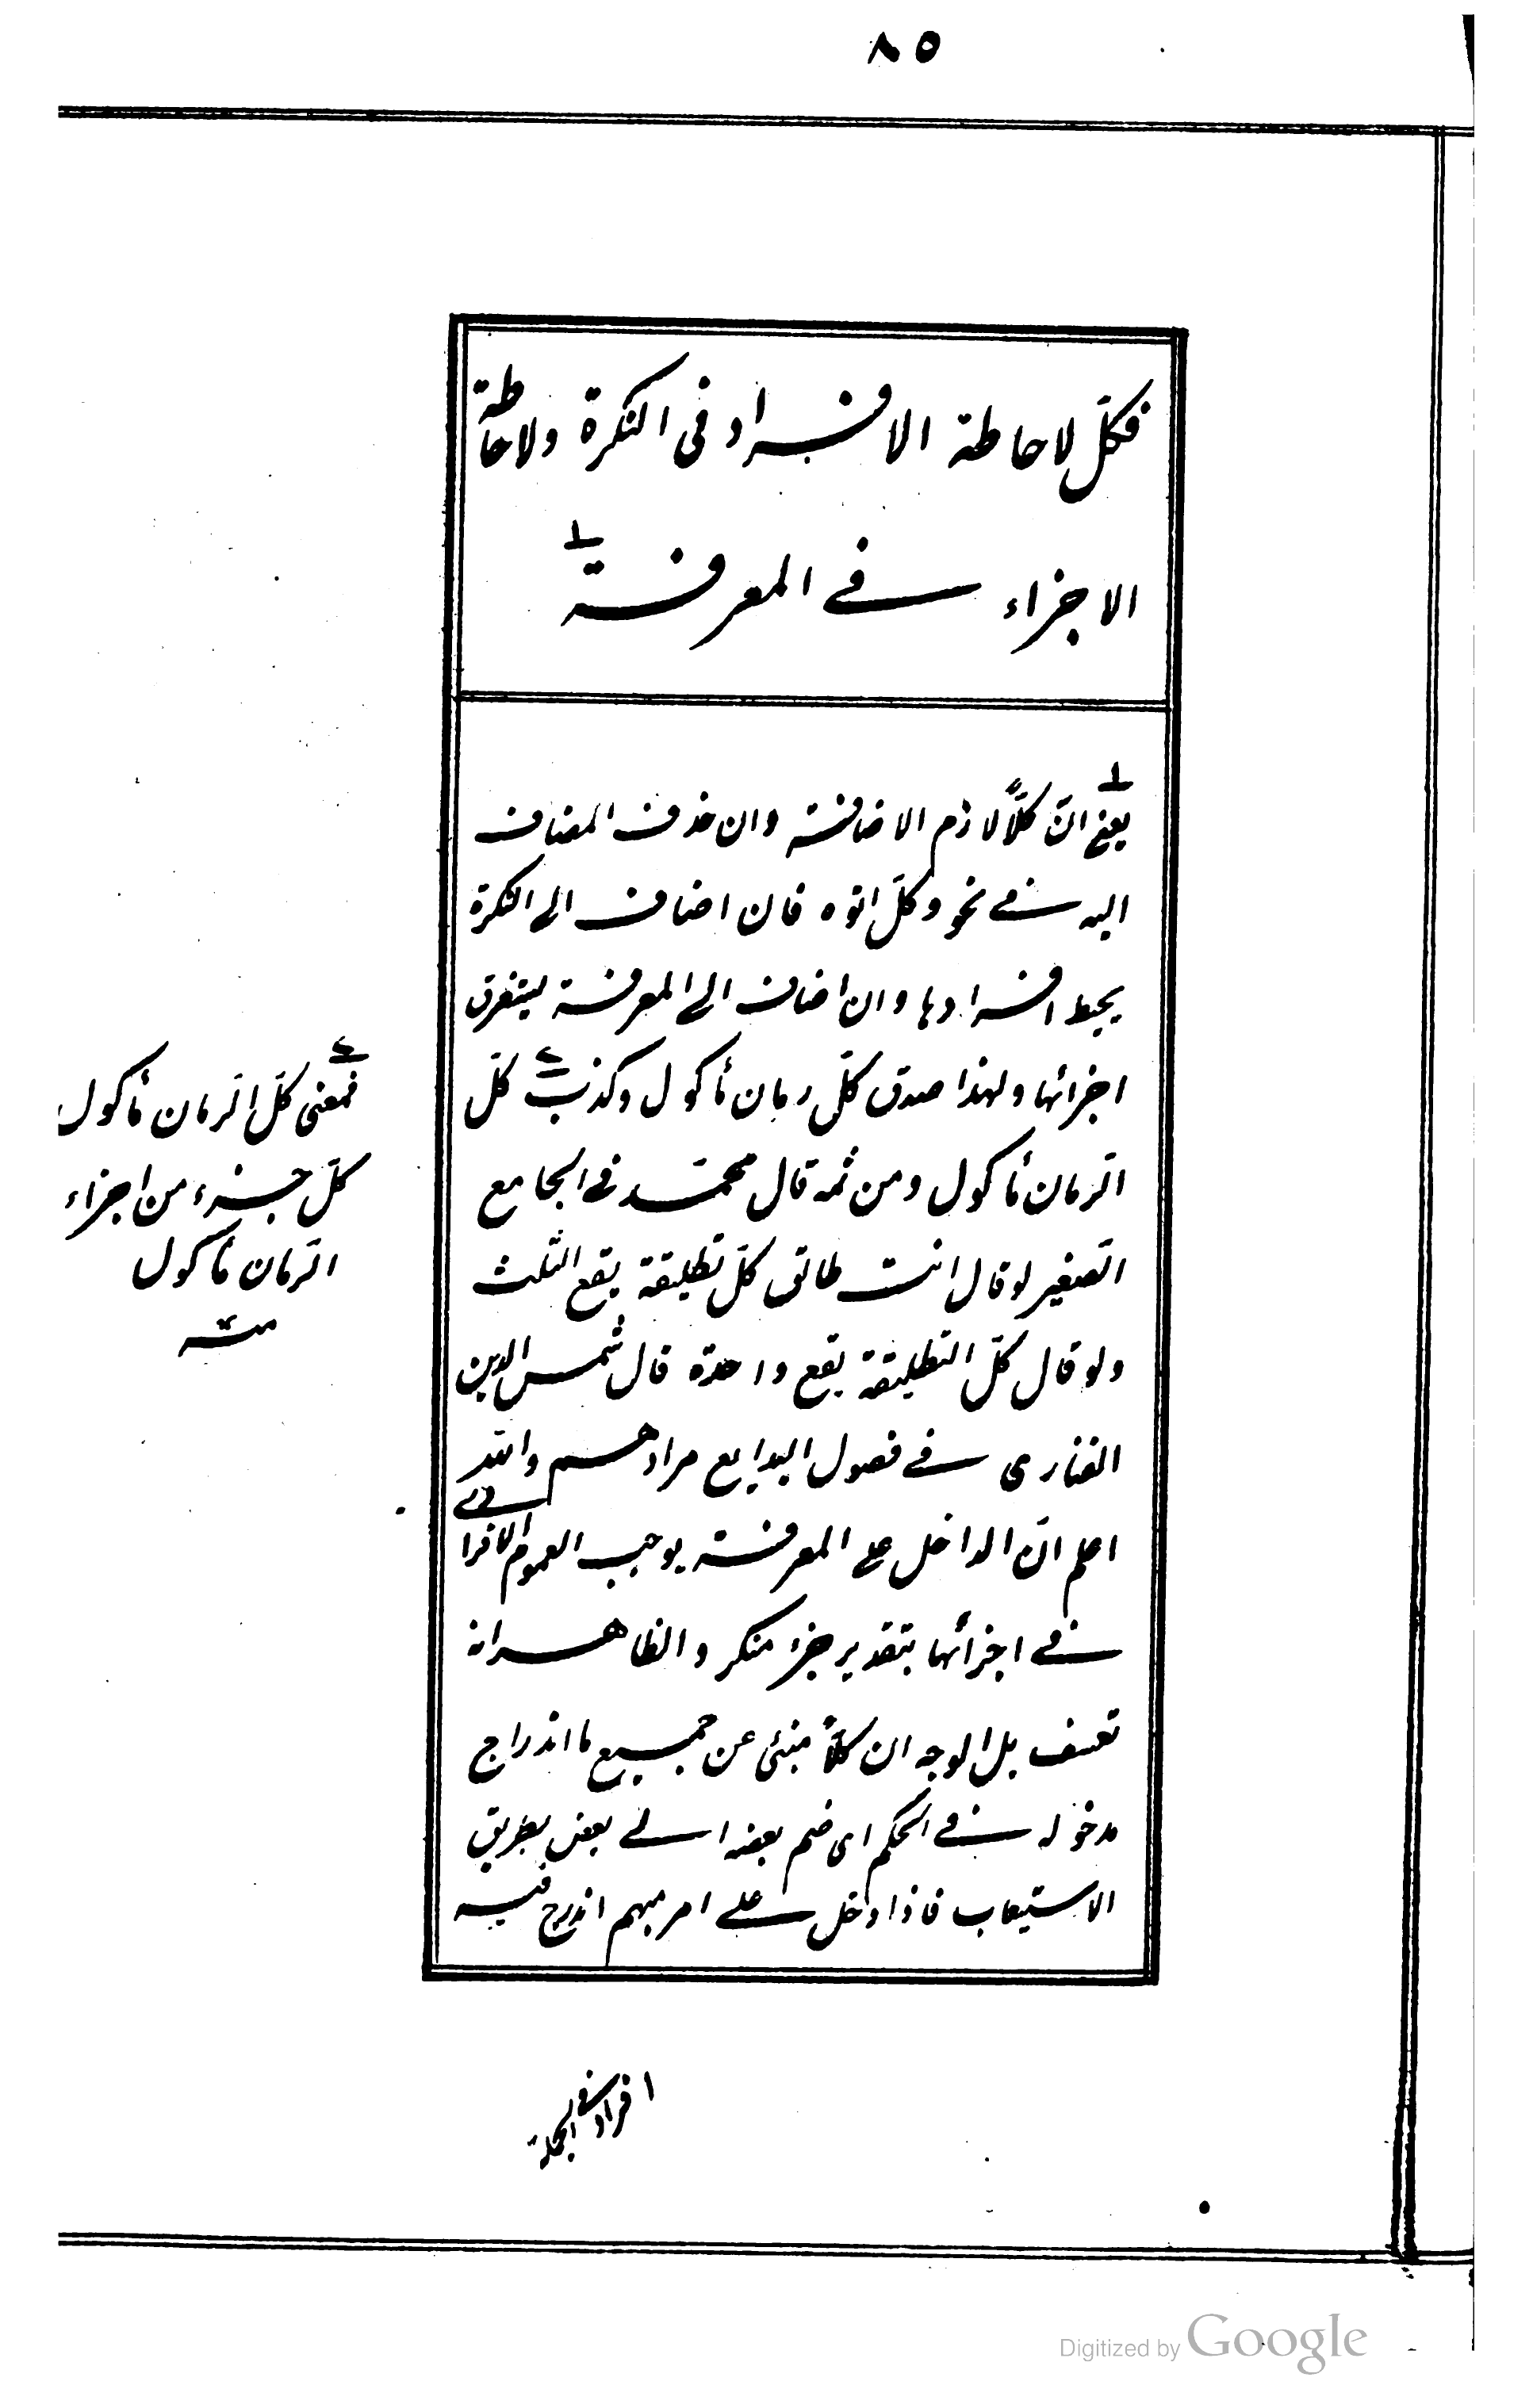 ٨٥
فكلّ لاحاطة الافراد فى النكرة ولاحاطة
الاجزاء فے المعرفة ١
١ يعنے انّ كلّاً لازم الاضافة وان حذف المضاف
اليه فے نحو وكلّ اتوه فان اضاف الى النكرة
يحيط افرادها وان اضاف الى المعرفة يستغرق
اجزائها ولهذا صدق كلّ رمان مأكول وكذب ٤ كلّ
الرّمان مأكول ومن ثمه قال محمّد فى الجامع
الصّغير لو قال انت طالق كلّ تطليقة يقع الثلث
ولو قال كلّ التطليقة يقع واحدة قال شمس الدين
الفنارى فے فصول البدايع مرادهم والله
اعلم انّ الداخل على المعرفة يوجب العموم الافرادے
فے اجزائها بتقدير جزء منكر والظاهر انه
تعسف بل الوجه ان كلّاً منبئ عن جميع ما اندراج
مدخوله فے الحكم اى ضم بعضه الے بعض بطريق
الاستيعاب فاذا دخل علے امر مبهم اندرج فيه
٤ فمعنى كلّ الرّمان مأكول
كلّ جزء من اجزاء
الرّمان مأكول
منه
افراد فى الجملة
Digitized by Google